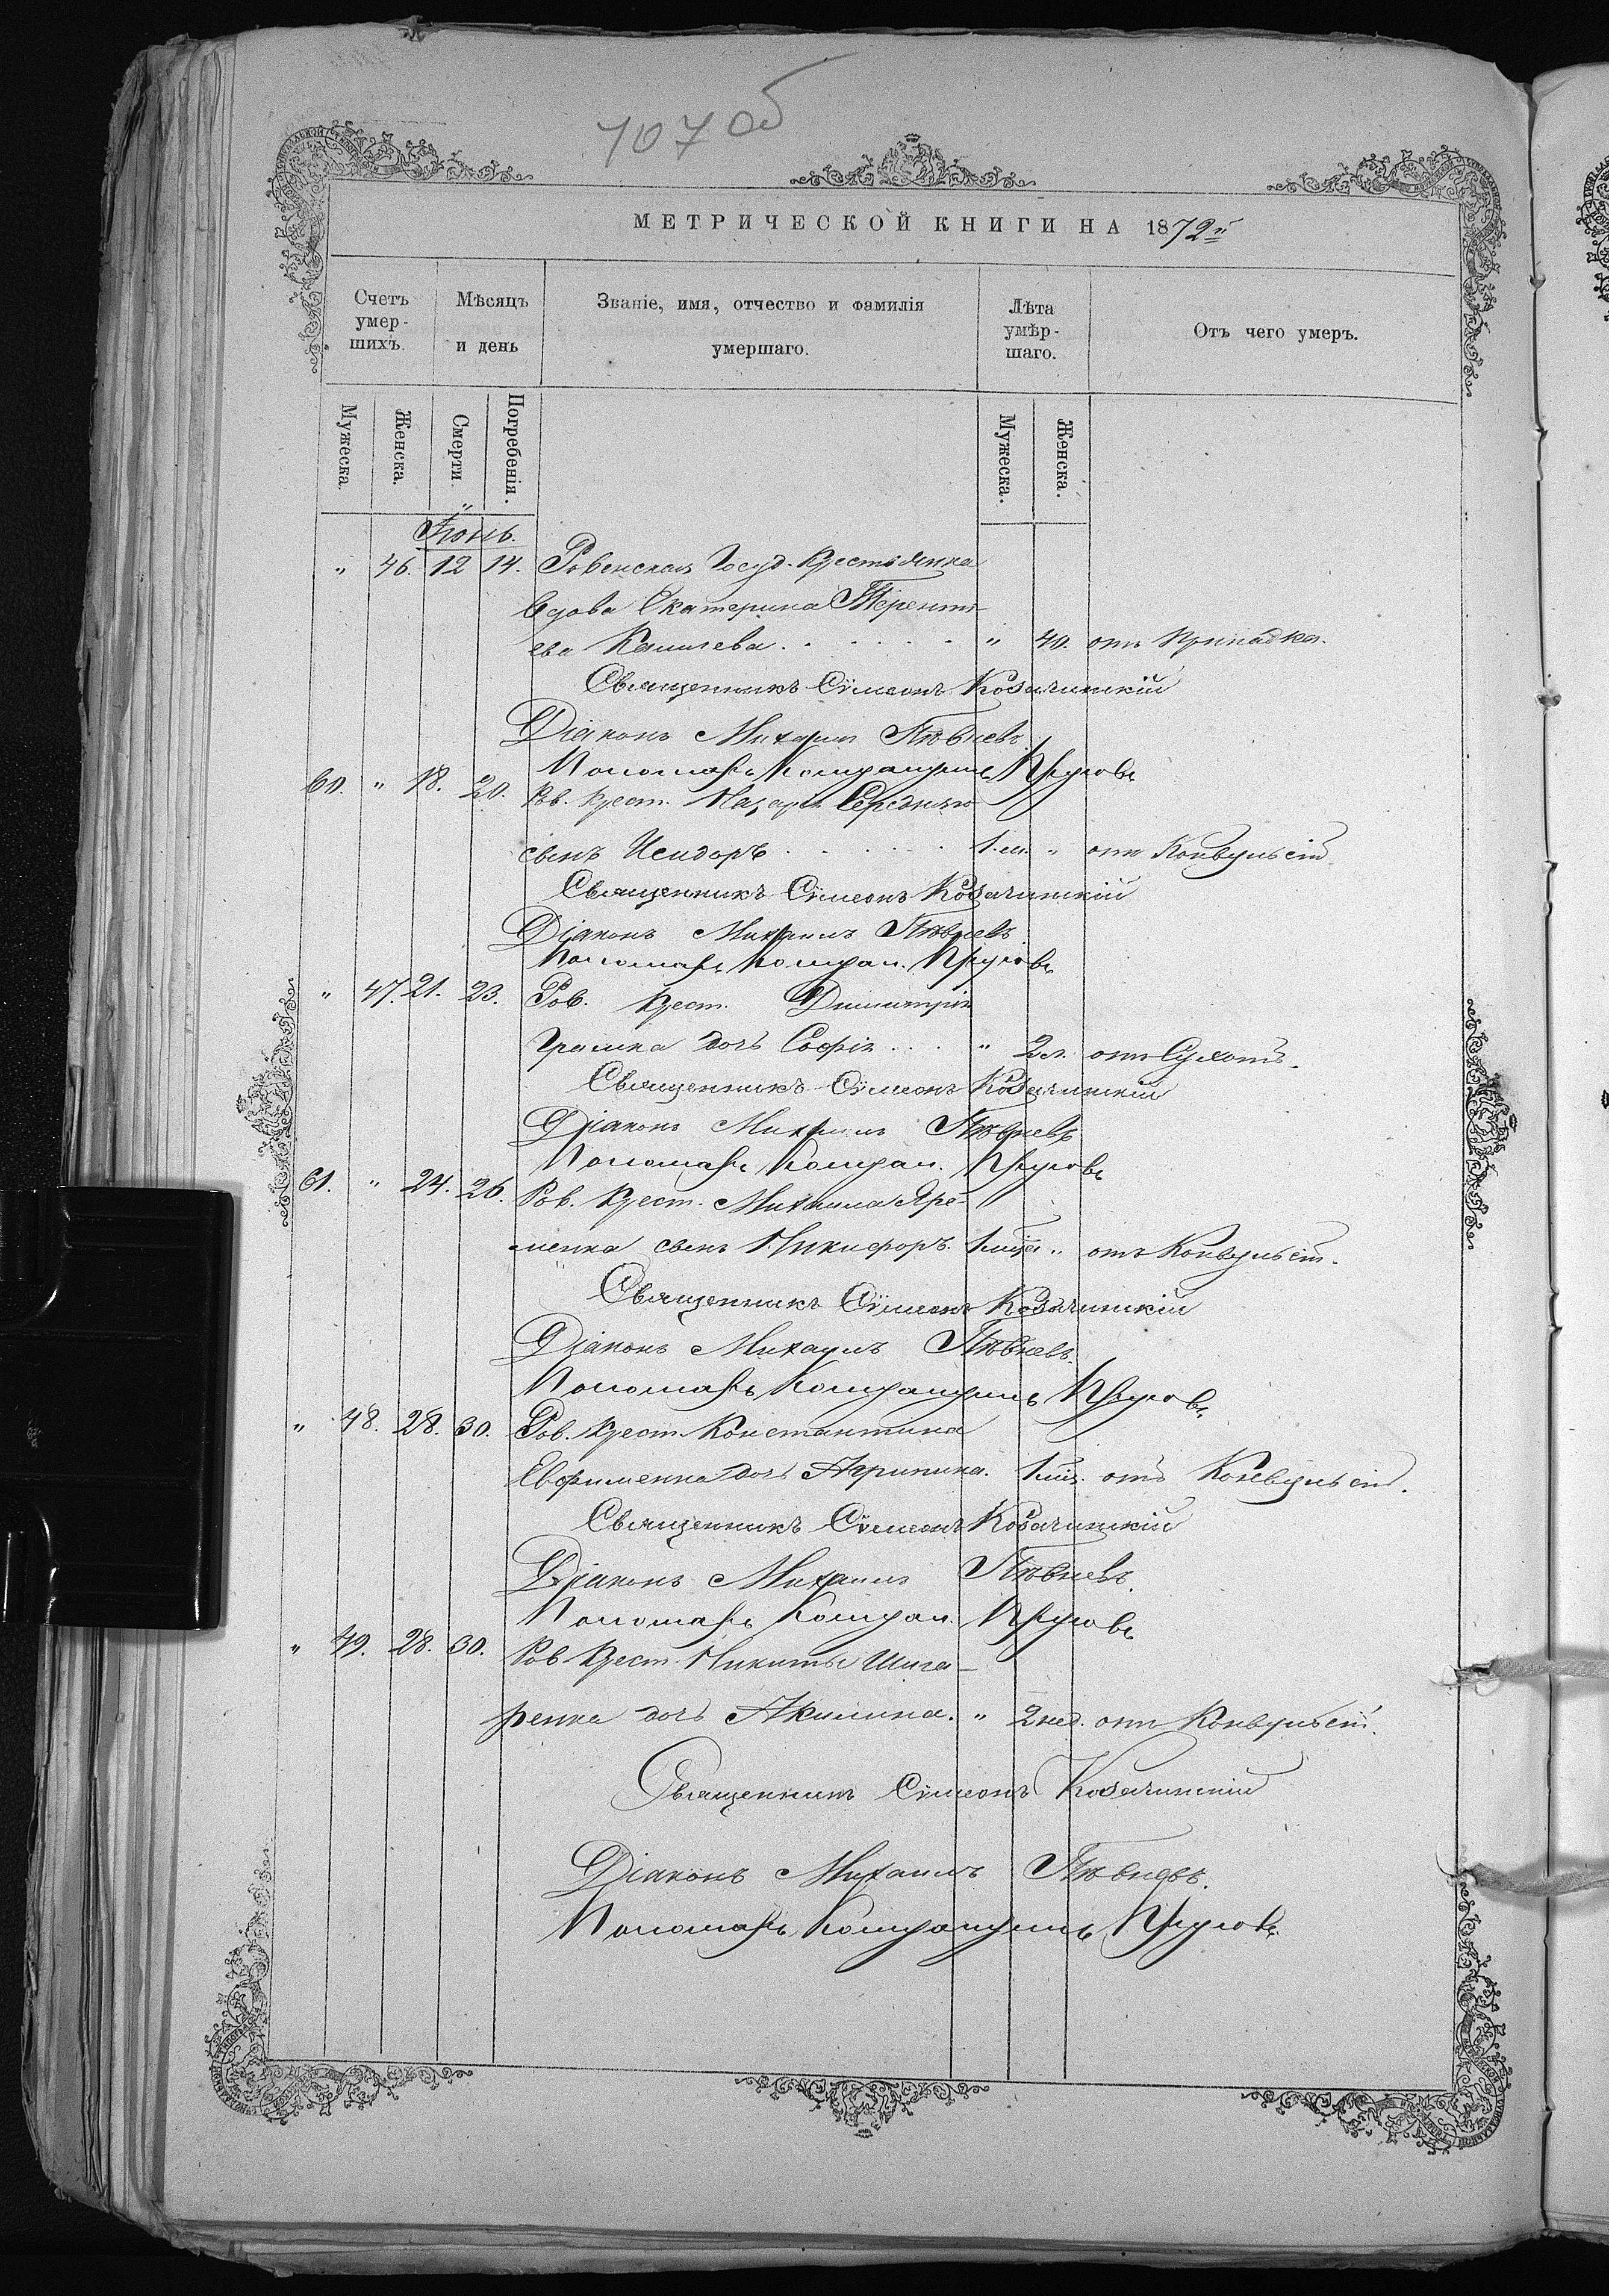 107 об
МЕТРИЧЕСКОЙ КНИГИ НА 1872й
Счетъ умер- шихъ.
Мѣсяцъ и день
Званіе, имя, отчество и фамилія умершаго.
Лѣта умѣр- шаго.
Отъ чего умеръ.
Мужеска. Женска. Смерти. Погребенія. Мужеска. Женска.
Іюнь.
" 46. 12 14. Ровенская Госуд. Крестьянка
вдова Екатерина Терентъ-
ева " 40. отъ Припадка.
Священникъ Сѵмеонъ Козачинскій
Діаконъ Михаилъ Пѣвневъ
Пономарь Кондратъ Круговъ
60. " 18. 20. Ров. Крест. Назарія Середняго
сынъ Исидоръ 1.м. " отъ Конвульсій
Священникъ Сѵмеонъ Козачинскій
Діаконъ Михаилъ Пѣвневъ
Пономарь Кондрат. Круговъ
" 47. 21. 23. Ров. Крест. Димитрія
дочь Софія " 2л. отъ Сухотъ.
Священникъ Сѵмеонъ Козачинскій
Діаконъ Михаилъ Пѣвневъ
Пономарь Кондрат. Круговъ
61. " 24. 26. Ров. Крест. Михаила Яре-
менка сынъ Никифоръ. 1мца " отъ Конвульсій.
Священникъ Сѵмеонъ Козачинскій
Діаконъ Михаилъ Пѣвневъ.
Пономарь Кондратъ Круговъ
" 48. 28. 30. Ров. Крест. Константина
Евфименка дочь Агрипина. 1мц. отъ Конвульсій.
Священникъ Сѵмеонъ Козачинскій
Діаконъ Михаилъ Пѣвневъ.
Пономарь Кондрат. Круговъ
" 49. 28. 30. Ров. Крест. Никиты Шига-
ренка дочь Акилина. " 2нед. отъ Конвульсій.
Священникъ Сѵмеонъ Козачинскій
Діаконъ Михаилъ Пѣвневъ.
Пономарь Кондратъ Круговъ